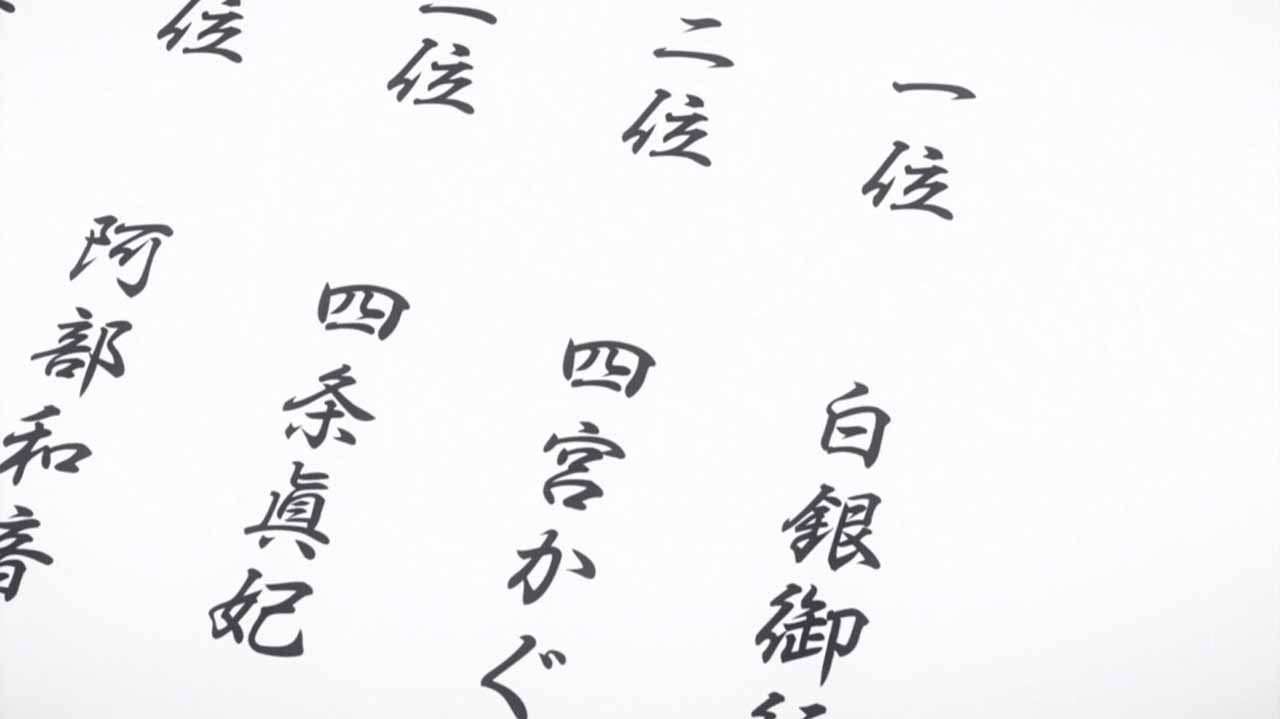 一位 白銀御
二位 四宮かぐ
位 四条眞妃
位 阿部和音